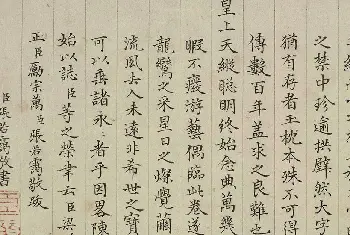 之禁中珍逾拱璧然大字
猶有存者玉枕本殊不可得
傳數百年蓋求之良難也
皇上天縱聰明終始念典萬幾
暇不癈游藝偶臨此卷遂
龍鸞之采星日之燦覺繭
流風去人未遠非希世之寶
可以垂諸永者乎因畧陳
始以誌臣等之榮幸云臣梁
正臣勵宗萬臣張若靄敬跋
臣張若靄敬書